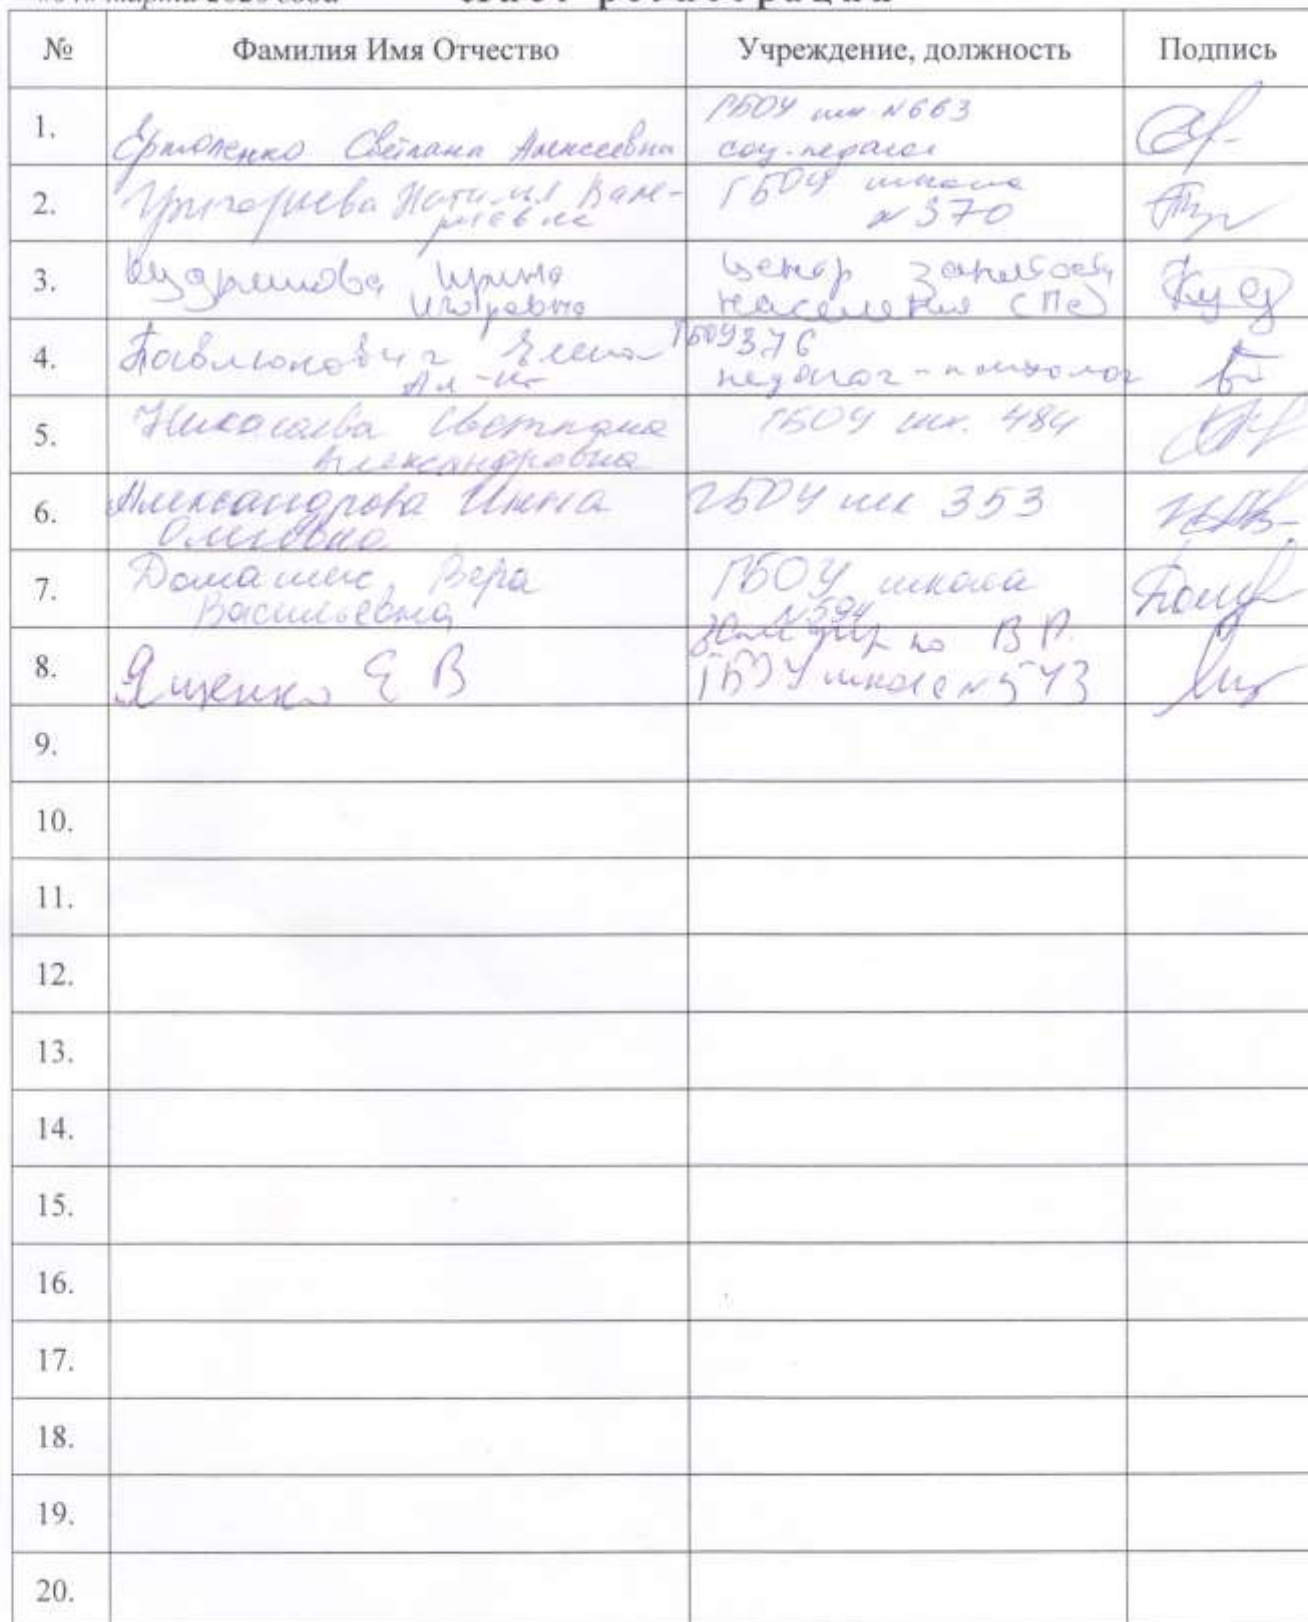 марта
регистрации
№ Фамилия Имя Отчество Учреждение, должность Подпись
1. Ермоленко Светлана Алексеевна ГБОУ шк N663
соц. педагог
2. Григорьева Наталья Вале-
риевна ГБОУ школа
N 370
3. Ирина
Игоревна Центр занятости
населения СПб
4. Павлюкович Елена
Ал-на ГБОУ 376
педагог-психолог
5. Николаева Светлана
Александровна ГБОУ шк. 484
6. Александрова Инна
Олеговна ГБОУ шк 353
7. Вера
Васильевна ГБОУ школа
N594
8. Ященко Е В зам дир по ВР
ГБОУ школа N543
9.
10.
11.
12.
13.
14.
15.
16.
17.
18.
19.
20.